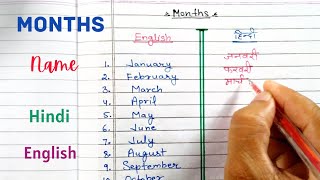 MONTHS
Name
Hindi
English
Months
English हिन्दी
1. January जनवरी
2. February फरवरी
3. March मार्च
4. April
5. May
6. June
7. July
8. August
9. September
10. October